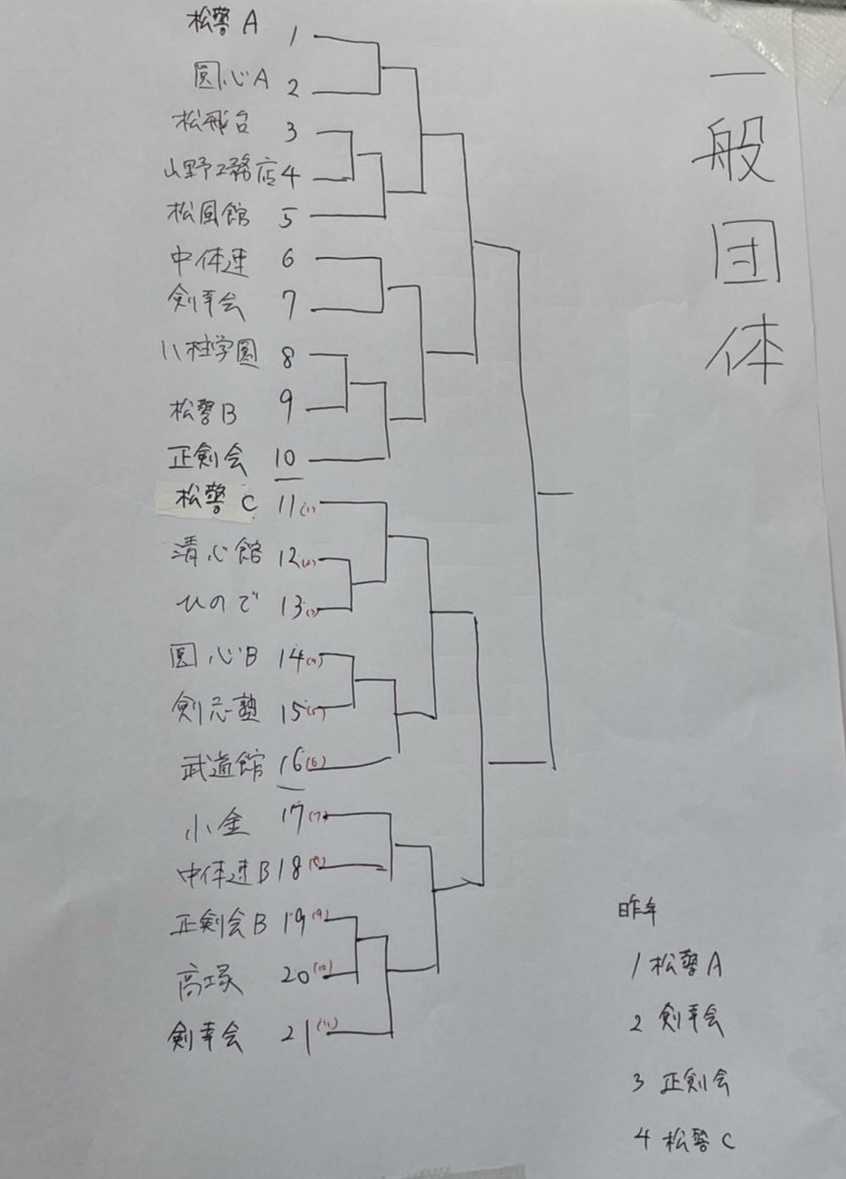 一般団体
松警 A 1
圓心A 2
松飛台 3
山野工務店 4
松風館 5
中体連 6
剣幸会 7
八柱学園 8
松警B 9
正剣会 10
松警 C 11(1)
清心館 12(2)
ひので 13(3)
圓心B 14(4)
剣志塾 15(5)
武道館 16(6)
小金 17(7)
中体連B 18(8)
正剣会B 19(9)
高塚 20(10)
剣幸会 21(11)
昨年
1 松警A
2 剣幸会
3 正剣会
4 松警C